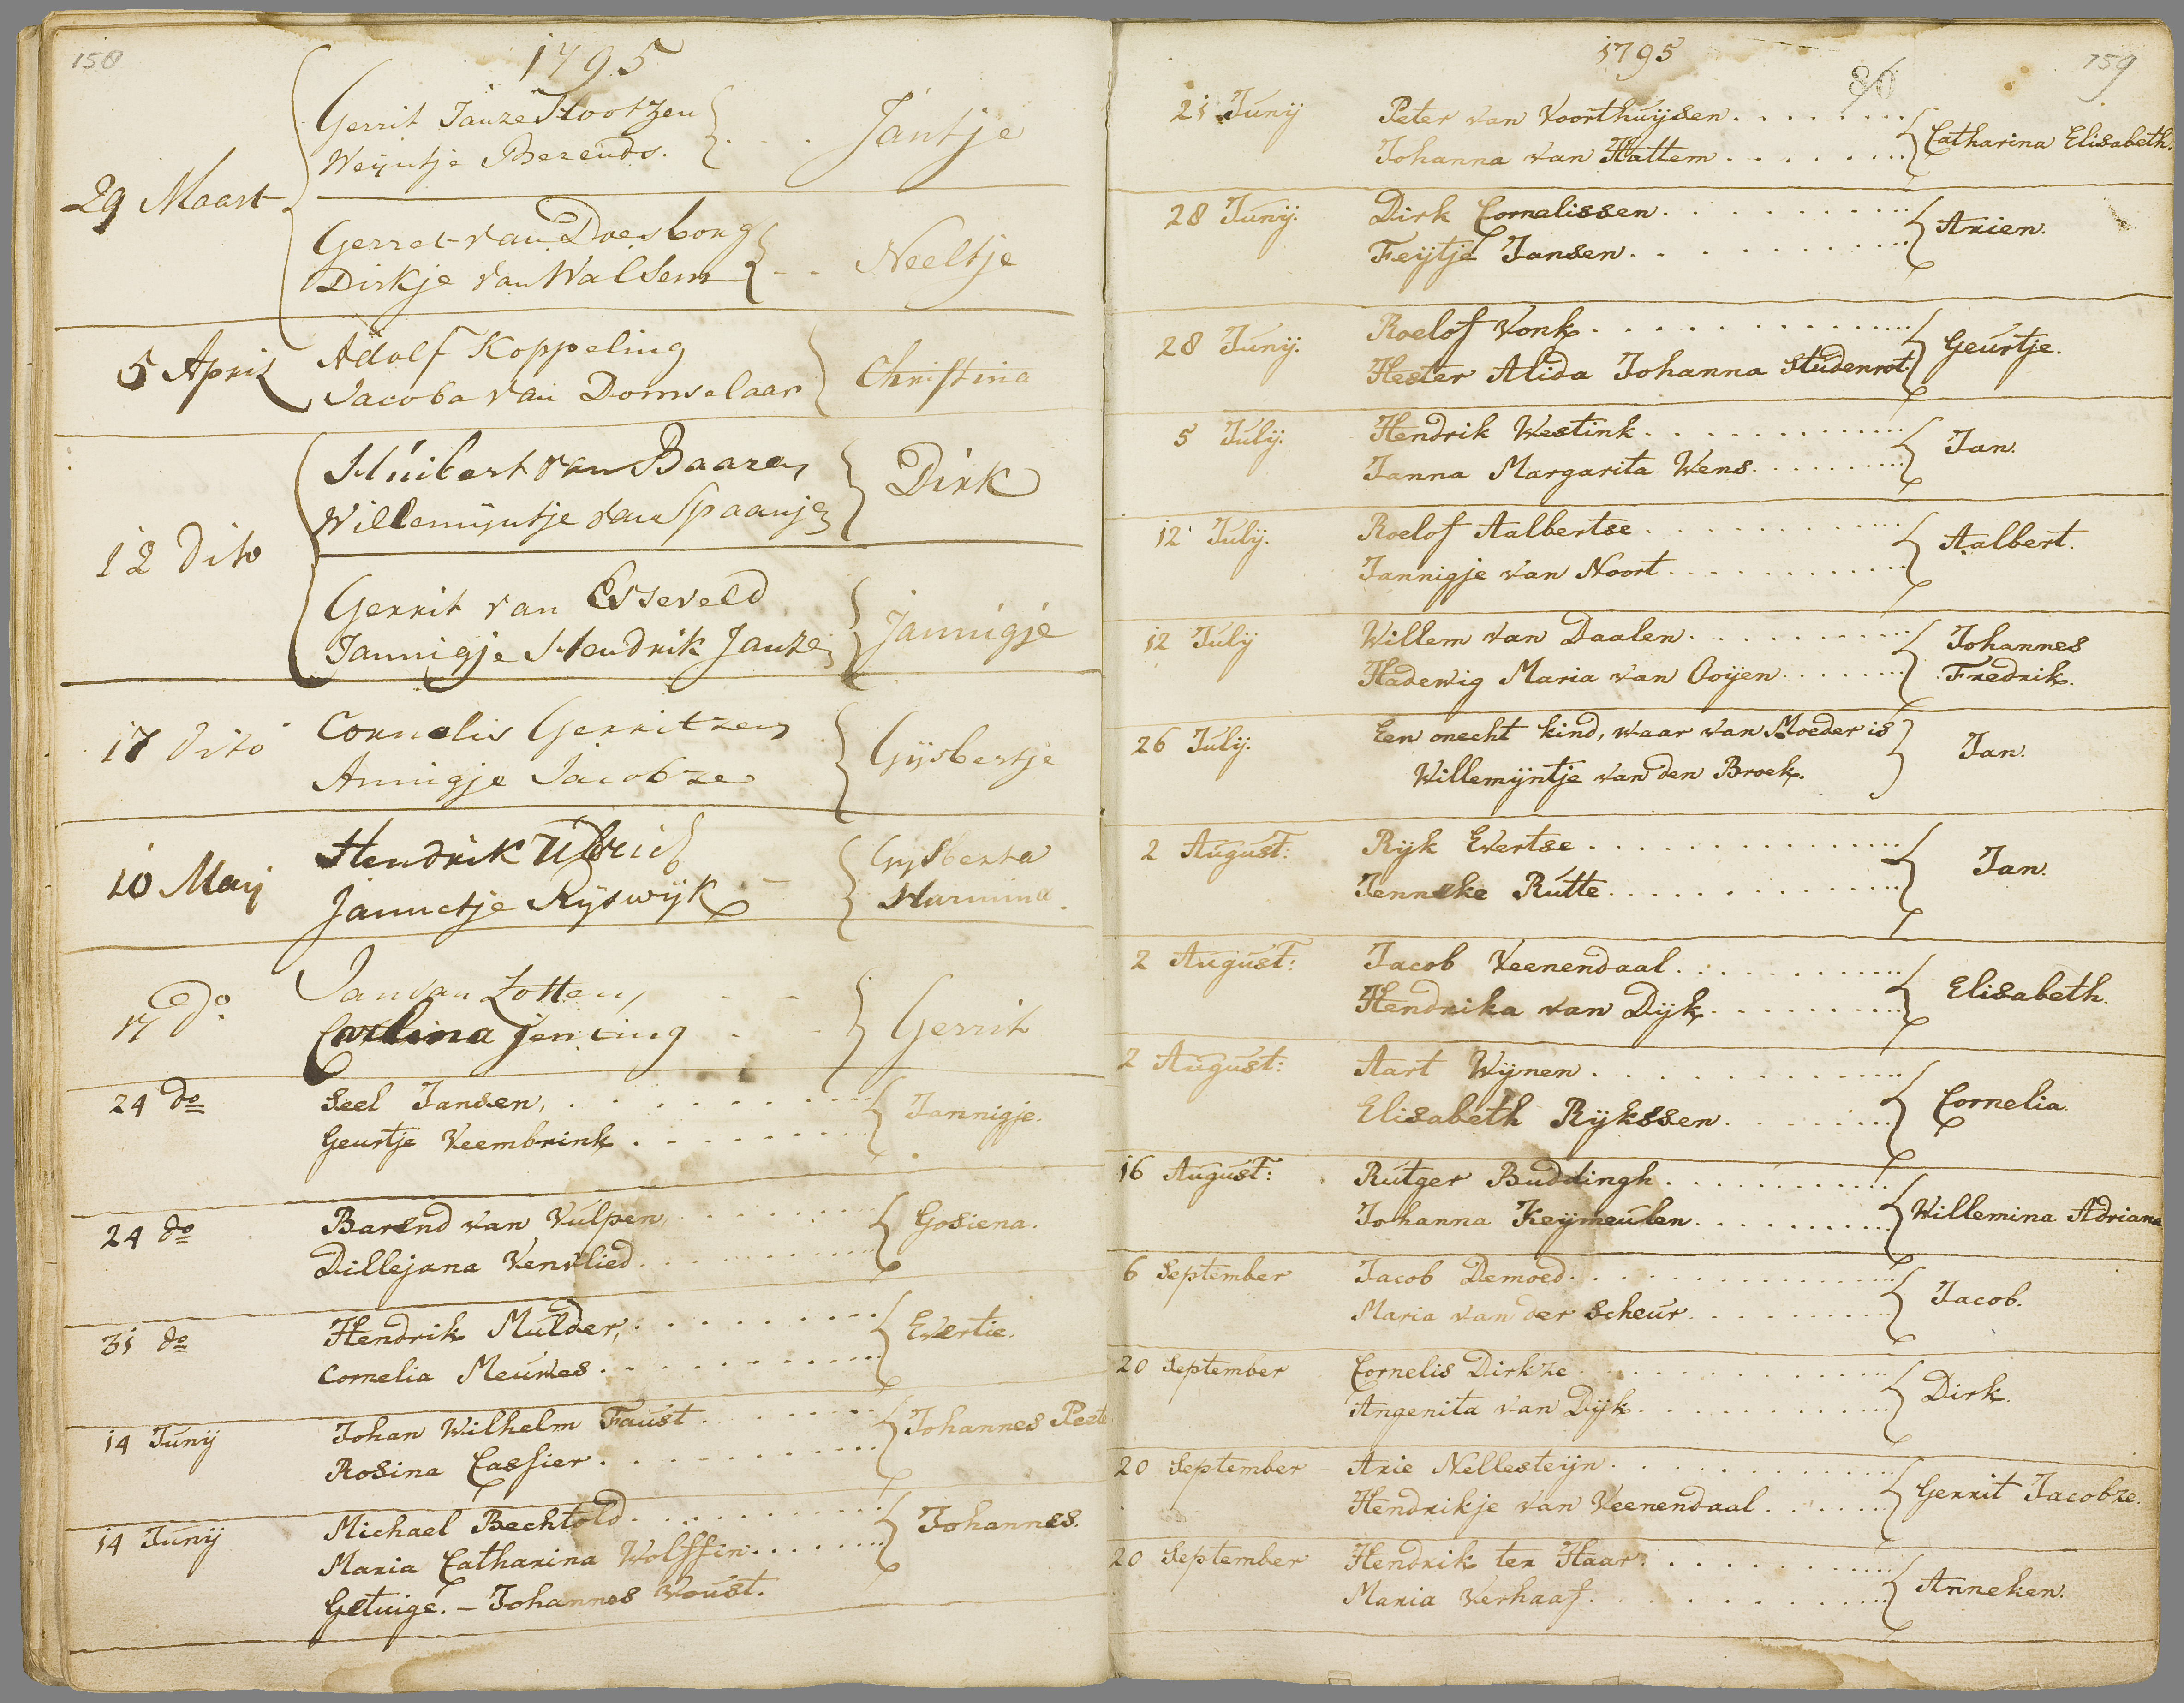 158
1795
29 Maart
Gerrit Janze Hootzen
Weijntje Berends.
Jantje
Gerret van Doesborg
Dirkje van Walsem
Neeltje
5 April
Adolf Koppeling
Jacoba van Domselaar
Christina
12 Dito
Huibert van Baaren
Willemijntje van Spaanje
Dirk
Gerrit van Esseveld
Jannigje Hendrik Janze
Jannigje
17 Dito
Cornelis Gerritzen
Annigje Jacobze
Gijsbertje
10 Maij
Hendrik
Jannetje Rijswijk
Gijsberta
Harmina.
17 do
Jan van Lotten
Carlina Jenting
Gerrit
24 do
Seel Jansen,
Geurtje Veembrink
Jannigje.
24 do
Barend van Vulpen,
Dillejana Venvlied
Gosiena.
31 do
Hendrik Mulder,
Cornelia Meuwes
Evertie.
14 Junij
Johan Wilhelm Faust
Rosina Cassier
Johannes Peete
14 Junij
Michael Bechtold
Maria Catharina Wolffin
Getuige. - Johannes Woust.
Johannes.
1795
80
159
21 Junij
Peter van Voorthuijsen
Johanna van Hattem
Catharina Elisabeth.
28 Junij.
Dirk Cornelissen
Feijtje Jansen
Arien.
28 Junij.
Roelof Vonk
Hester Alida Johanna Studenrot.
Geurtje.
5 Julij.
Hendrik Westink
Janna Margarita Wens
Jan.
12 Julij.
Roelof Aalbertse
Jannigje van Noort
Aalbert.
12 Julij
Willem van Daalen
Hadewig Maria van Ooijen
Johannes
Fredrik.
26 Julij.
Een onecht kind, waar van Moeder is
Willemijntje van den Broek.
Jan.
2 August:
Rijk Evertse
Jenneke Rutte
Jan.
2 August:
Jacob Veenendaal
Hendrika van Dijk
Elisabeth.
2 August:
Aart Wijnen
Elisabeth Rijkssen
Cornelia.
16 August:
Rutger Buddingh
Johanna Keijmeulen
Willemina Adriana
6 September
Jacob Demoed
Maria van der Scheur
Jacob.
20 September
Cornelis Dirkze
Angenita van Dijk
Dirk.
20 September
Arie Nellesteijn
Hendrikje van Veenendaal
Gerrit Jacobze.
20 September
Hendrik ter Haar
Maria Verhaaf
Anneken.